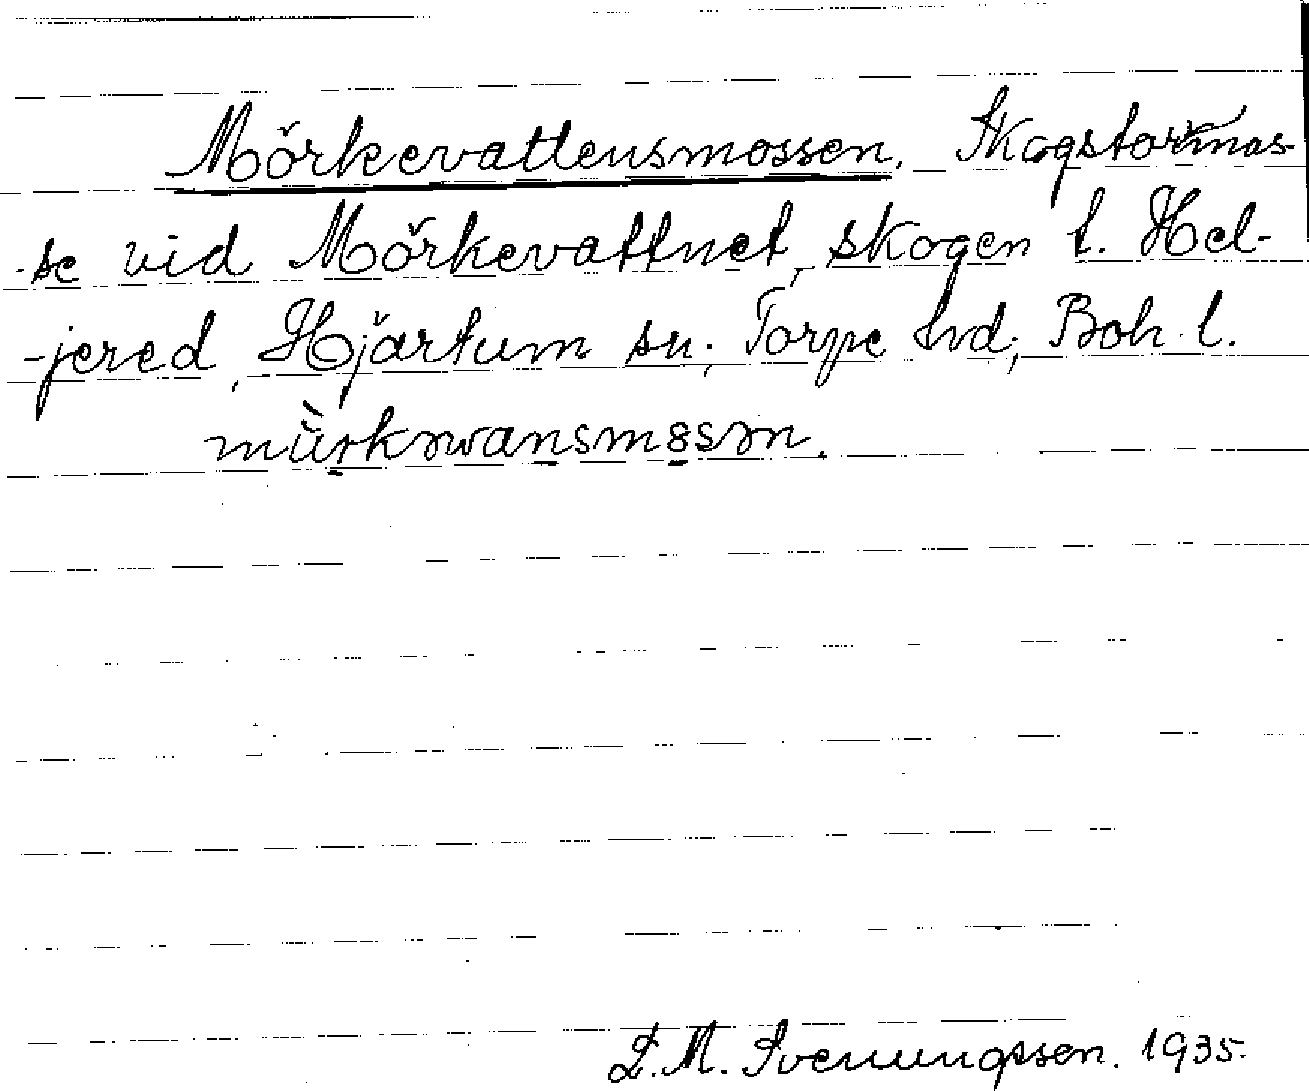 Mörkevattensmossen. Skogstormas-
-se vid Mörkevattnet, skogen t. Hel-
-jered, Hjärtum sn; Torpe hd; Boh. l.
mùrkəwansmɔsən.
L.M. Svenungsson. 1935.